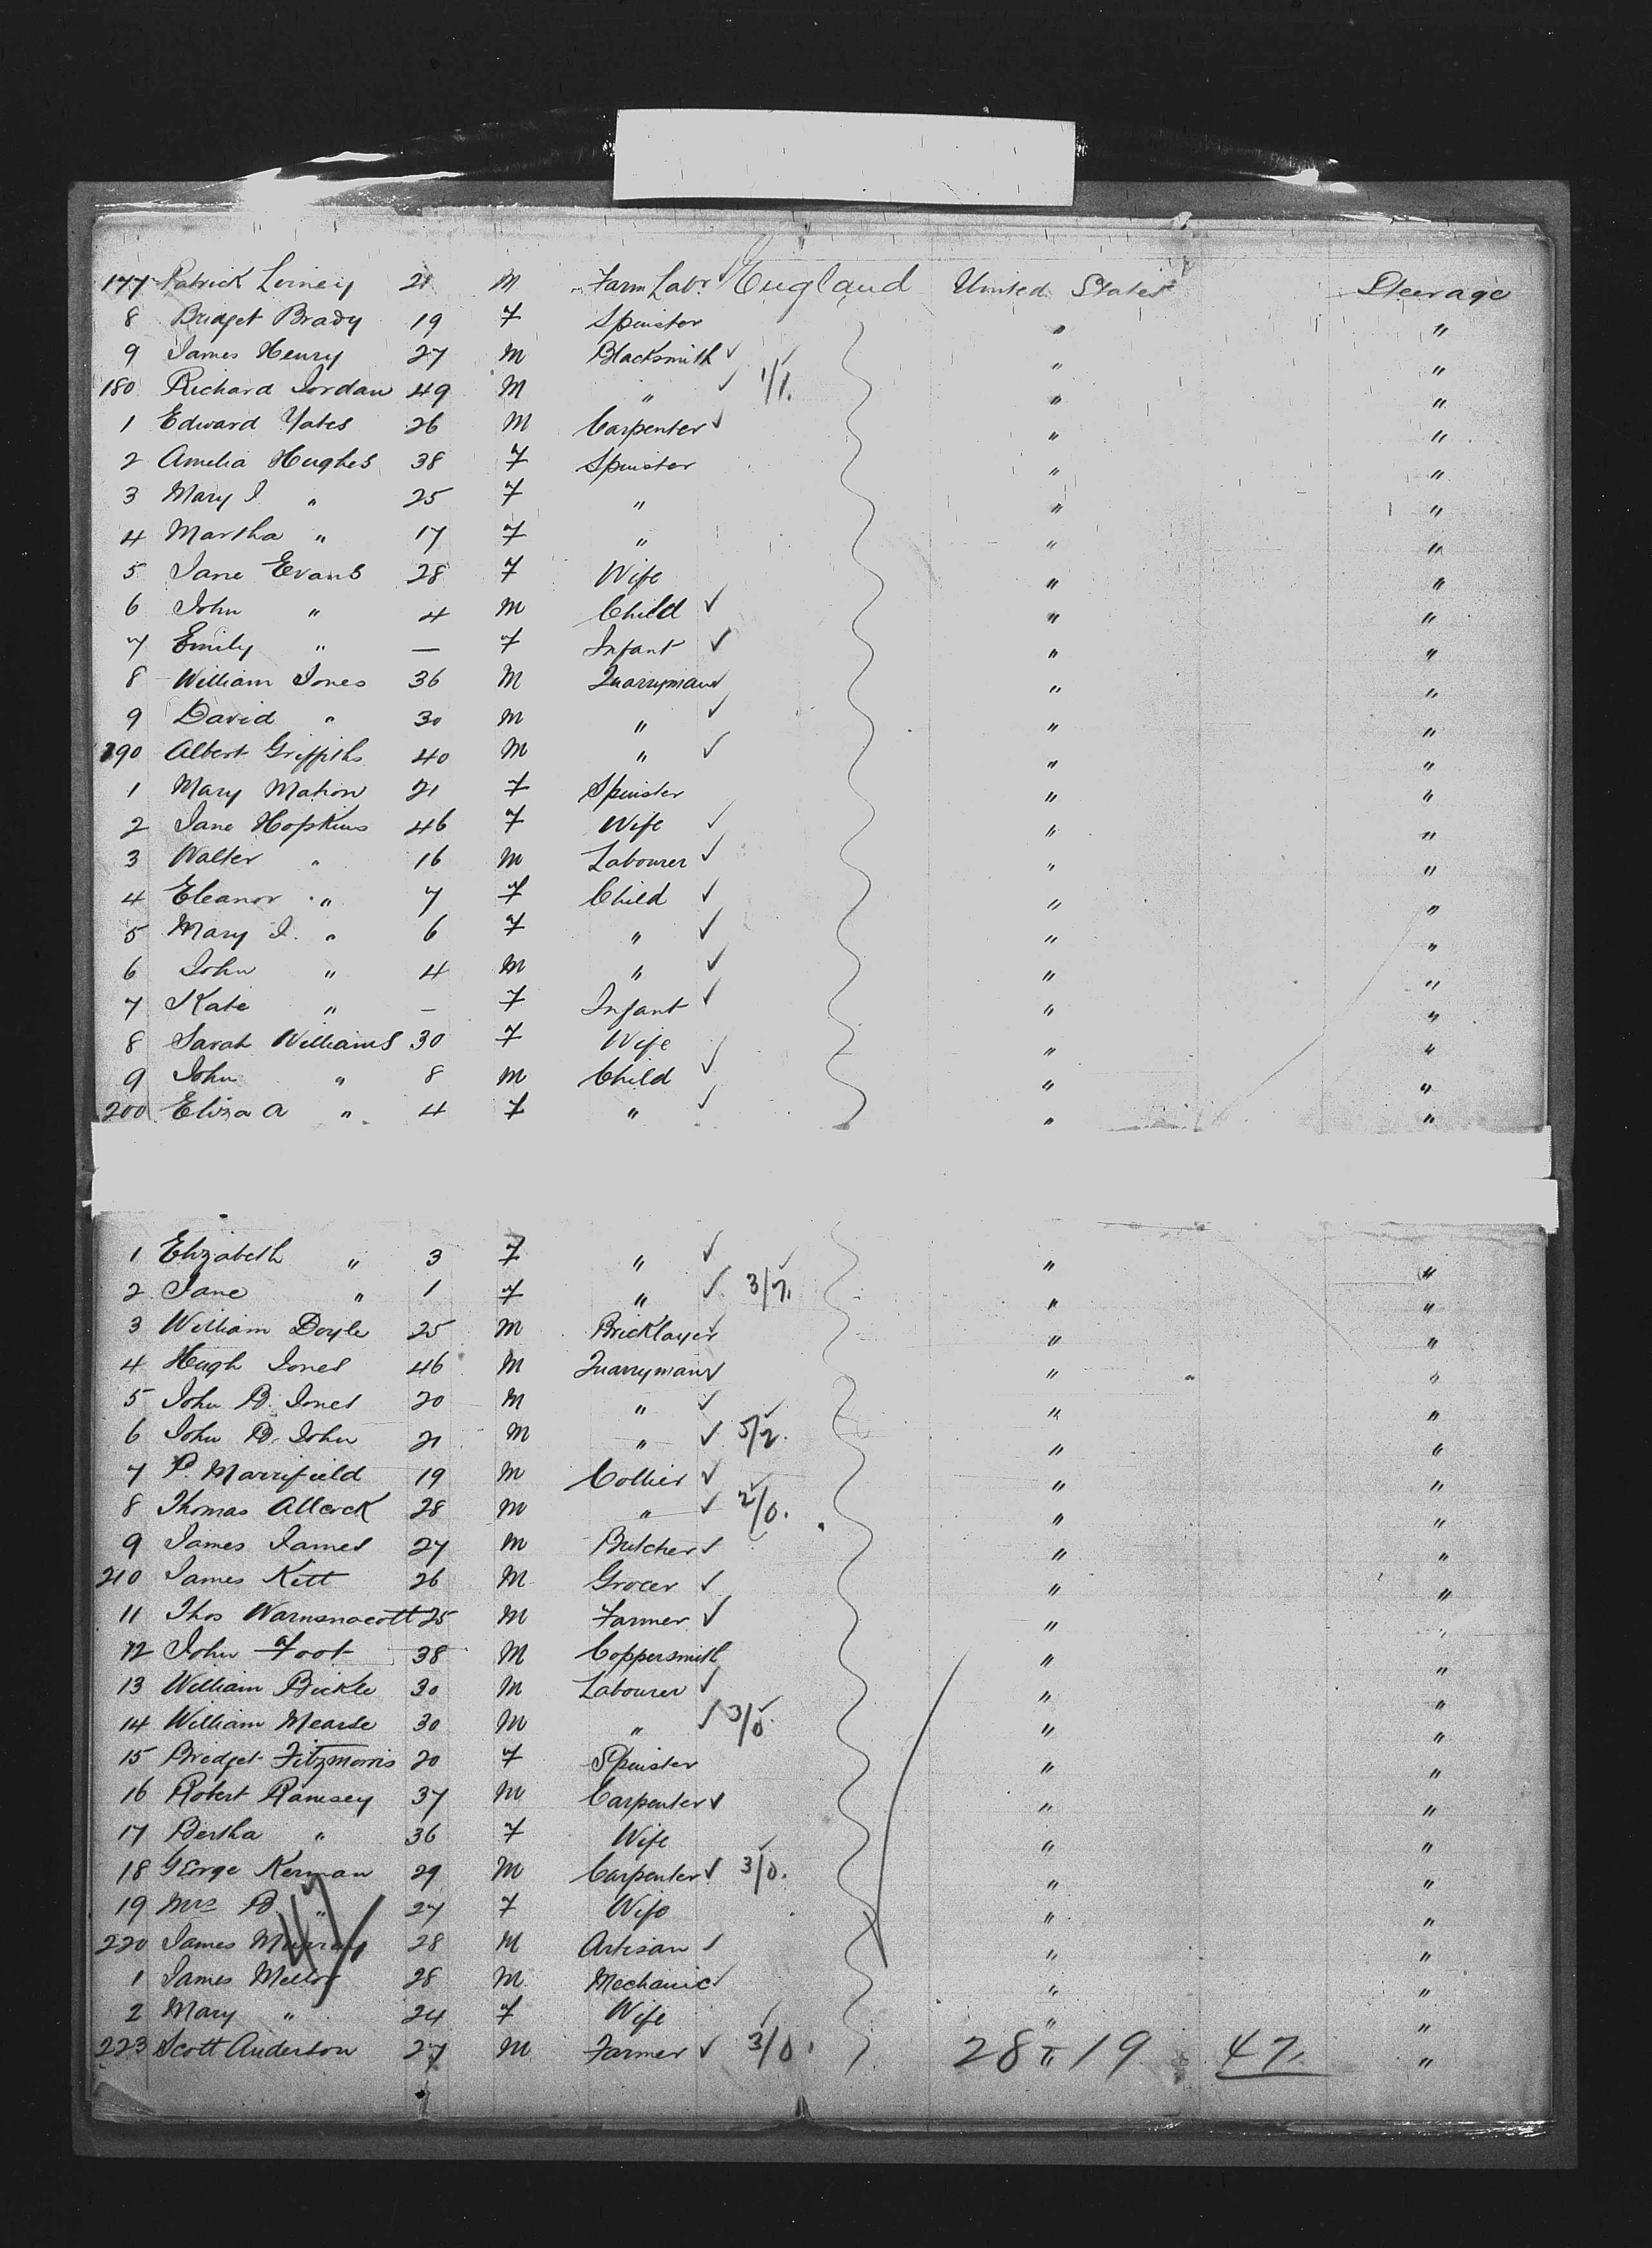 177 Patrick 21 M Farm Labr England United States Steerage
8 Bridget Brady 19 F Spinster " "
9 James Henry 27 M Blacksmith " "
180 Richard Jordan 49 M " 1/1. " "
1 Edward Yates 26 M Carpenter " "
2 Amelia Hughes 38 F Spinster " "
3 Mary J. " 25 F " " "
4 Martha " 17 F " " "
5 Jane Evans 28 F Wife " "
6 John " 4 M Child " "
7 Emily " — F Infant " "
8 William Jones 36 M Quarryman " "
9 David " 30 M " " "
190 Albert Griffiths 40 M " " "
1 Mary Mahon 21 F Spinster " "
2 Jane Hopkins 46 F Wife " "
3 Walter " 16 M Labourer " "
4 Eleanor " 7 F Child " "
5 Mary J. " 6 F " " "
6 John " 4 M " " "
7 Kate " — F Infant " "
8 Sarah Williams 30 F Wife " "
9 John " 8 M Child " "
200 Eliza A " 4 F " " "
1 Elizabeth " 3 F " " "
2 Jane " 1 F " 3/7. " "
3 William Doyle 25 M Bricklayer " "
4 Hugh Jones 46 M Quarryman " "
5 John B. Jones 20 M " " "
6 John B. John 21 M " 5/2. " "
7 P. Marrifield 19 M Collier " "
8 Thomas 28 M " 2/0. " "
9 James James 27 M Butcher " "
210 James Kett 26 M Grocer " "
11 Thos 25 M Farmer " "
12 John Foot 38 M Coppersmith " "
13 William Bickle 30 M Labourer " "
14 William Mearse 30 M " 3/0. " "
15 Bridget Fitzmorris 20 F Spinster " "
16 Robert Ramsey 37 M Carpenter " "
17 Bertha " 36 F Wife " "
18 George Kerman 29 M Carpenter 3/0. " "
19 Mrs B. " 27 F Wife " "
220 James Murray 28 M Artisan " "
1 James Mellor 28 M Mechanic " "
2 Mary " 24 F Wife " "
223 Scott Anderson 27 M Farmer 3/0. 28 " 19 47. "